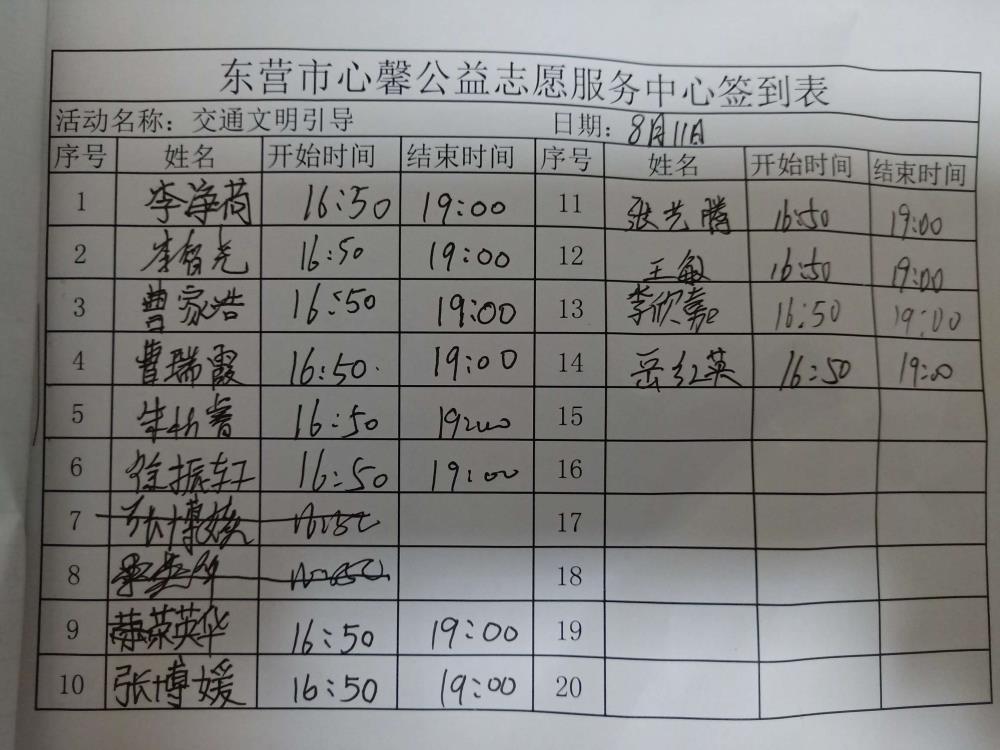 东营市心馨公益志愿服务中心签到表
活动名称：交通文明引导 日期：8月11日
序号 姓名 开始时间 结束时间 序号 姓名 开始时间 结束时间
1 李净荷 16:50 19:00 11 张艺腾 16:50 19:00
2 李智尧 16:50 19:00 12 王敏 16:50 19:00
3 曹家浩 16:50 19:00 13 李欣嘉 16:50 19:00
4 曹瑞霞 16:50. 19:00 14 岳红英 16:50 19:00
5 16:50 19:00 15
6 徐振轩 16:50 19:00 16
7 张博媛 17
8 18
9 荣英华 16:50 19:00 19
10 张博媛 16:50 19:00 20